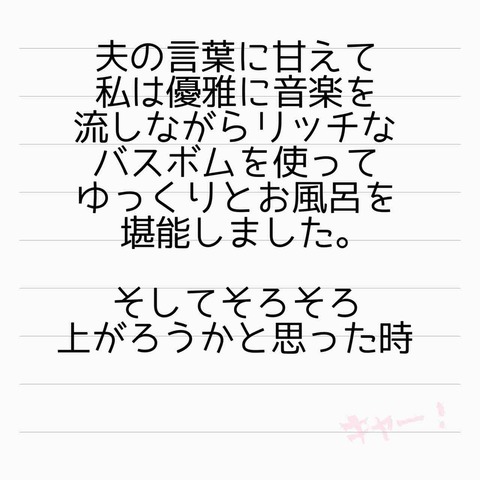 夫の言葉に甘えて
私は優雅に音楽を
流しながらリッチな
バスボムを使って
ゆっくりとお風呂を
堪能しました。
そしてそろそろ
上がろうかと思った時
キャー!